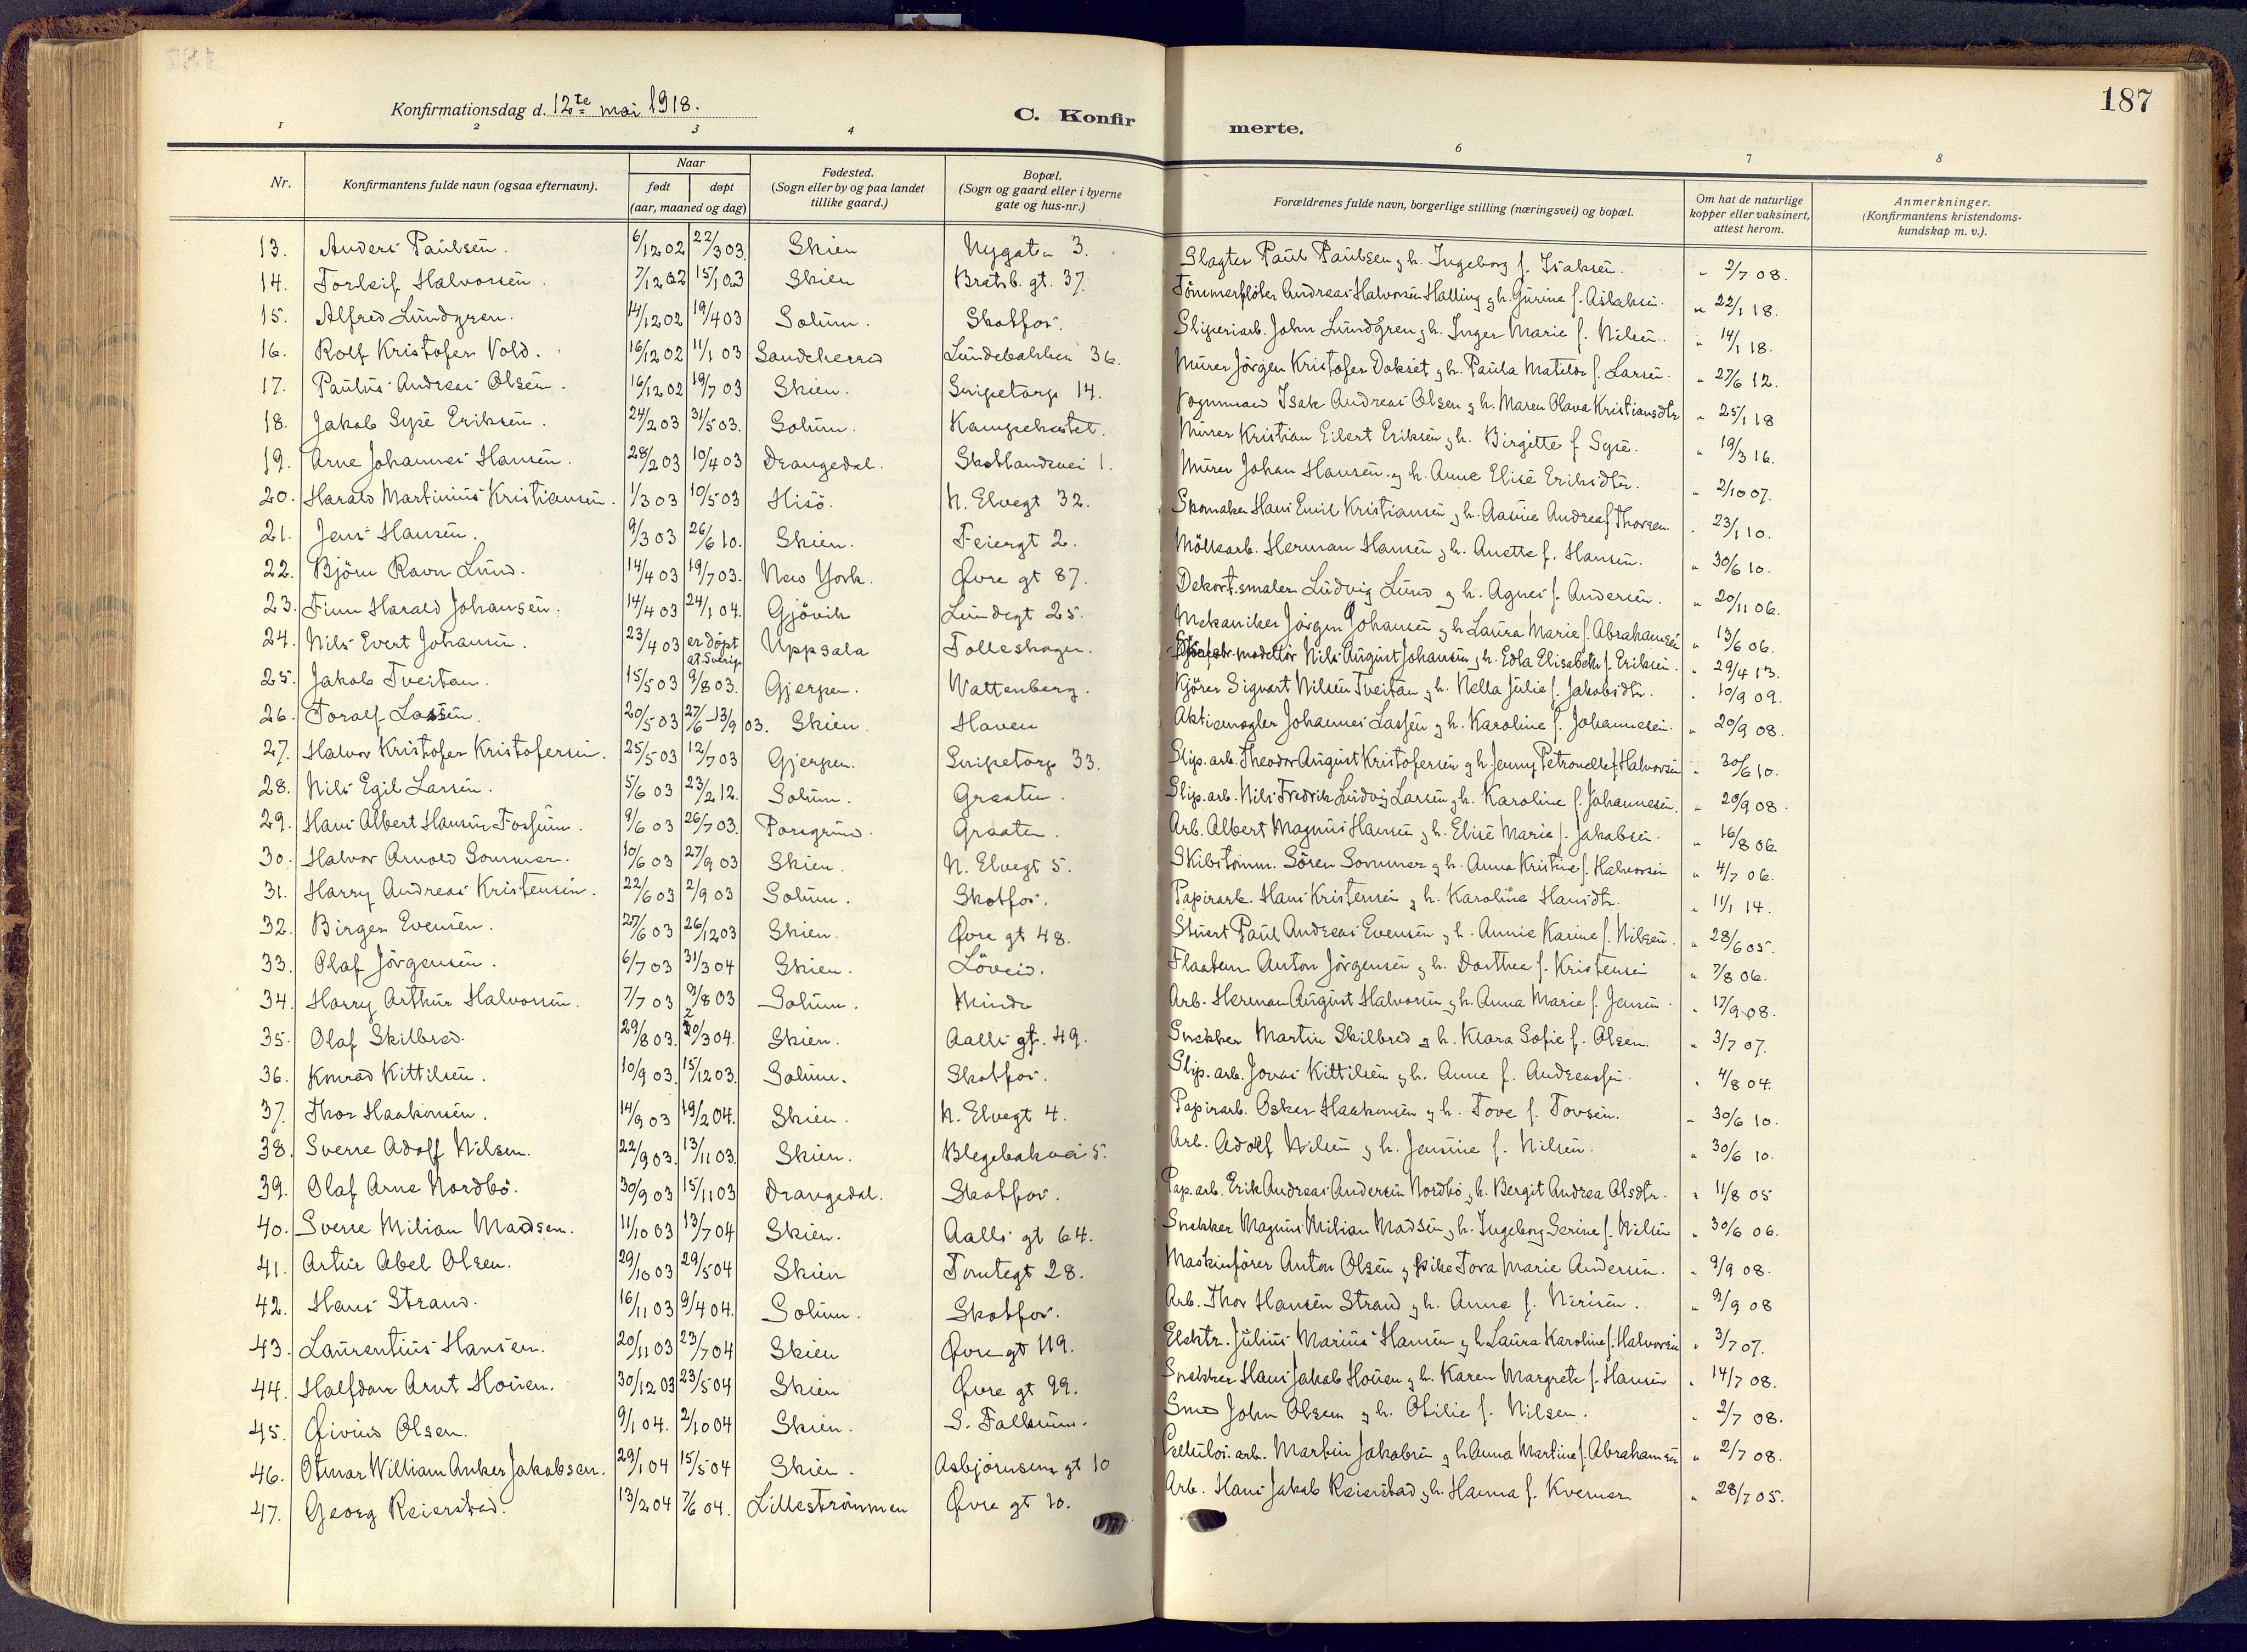 187
Konfirmationsdag d. 12te mai 1918.
C. Konfirmerte.
1 2 3 4 6 7 8
Nr. | Konfirmantens fulde navn (ogsaa efternavn). | Naar født døpt (aar, maaned og dag) | Fødested. (Sogn eller by og paa landet tillike gaard.) | Bopæl. (Sogn og gaard eller i byerne gate og hus-nr.) | Forældrenes fulde navn, borgerlige stilling (næringsvei) og bopæl. | Om hat de naturlige kopper eller vaksinert, attest herom. | Anmerkninger. (Konfirmantens kristendomskundskap m. v.).
13. Anders Paulsen. 6/12 02 22/3 03. Skien Nygaten 3. Slagter Paul Paulsen g h. Ingeborg f. Isaksen. " 2/7 08.
14. Torleif Halvorsen. 7/12 02 15/1 03 Skien Bratsb. gt. 37. Tömmerflöter Andreas Halvorsen Halling g h. Gurine f. Aslaksen. " 22/1 18.
15. Alfred Lundgren. 14/12 02 19/4 03 Solum. Skotfos. Sliperiarb. John Lundgren g h. Inger Marie f. Nilsen. " 14/1 18.
16. Rolf Kristofer Vold. 16/12 02 11/1 03 Sandeherred Lundebakken 36. Murer Jörgen Kristofer Dokset g h. Paula Matilde f. Larsen. " 27/6 12.
17. Paulus Andreas Olsen. 16/12 02 19/7 03 Skien. Snipetorp 14. Vognmand Isak Andreas Olsen g h. Maren Olava Kristiansdtr " 25/1 18
18. Jakob Sype Eriksen. 24/2 03 31/5 03. Solum. Kampehestet. Murer Kristian Eilert Eriksen g h. Birgitte f. Sype. " 19/3 16.
19. Arne Johannes Hansen. 28/2 03 10/4 03 Drangedal. Skotlandsvei 1. Murer Johan Hansen g h. Anne Elise Eriksdtr. " 2/10 07.
20. Harald Martinius Kristiansen. 1/3 03 10/5 03 Hisö. N. Elvegt 32. Skomaker Hans Emil Kristiansen g h. Aasine Andrea f. Thorsen. " 23/1 10.
21. Jens Hansen. 9/3 03 26/6 10. Skien. Feiergt 2. Möllearb. Herman Hansen g h. Anette f. Hansen. " 30/6 10.
22. Björn Ravn Lund. 14/4 03 19/7 03. New York. Øvre gt 87. Dekort.smaler Ludvig Lund g h. Agnes f. Andersen. " 20/11 06.
23. Finn Harald Johansen. 14/4 03 24/1 04. Gjövik Lundegt 25. Mekaniker Jörgen Johansen g h Laura Marie f. Abrahamsen " 13/6 06.
24. Nils Evert Johansen. 23/4 03 er döpt at. Sverige Uppsala Folleshagen. modellör Nils August Johansen g h. Edla Elisabeth f. Eriksen. " 29/4 13.
25. Jakob Tveitan. 15/5 03 9/8 03. Gjerpen. Wattenberg. Kjörer Sigvart Nilsen Tveitan g h. Nella Julie f. Jakobsdtr. " 10/9 09.
26. Toralf Lassen. 20/5 03 27/6–13/9 03. Skien. Haven Aktiemægler Johannes Lassen g h. Karoline f. Johannesen. " 20/9 08.
27. Halvor Kristofer Kristofersen. 25/5 03 12/7 03 Gjerpen. Snipetorp 33. Slip. arb. Theodor August Kristofersen g h Jenny Petronelle f. Halvorsen " 30/6 10.
28. Nils Egil Larsen. 5/6 03 23/2 12. Solum. Graaten. Slip. arb. Nils Fredrik Ludvig Larsen g h. Karoline f. Johannesen. " 20/9 08.
29. Hans Albert Hansen Fossum. 9/6 03 26/7 03. Porsgrund. Graaten. Arb. Albert Magnus Hansen g h. Elise Marie f. Jakobsen. " 16/8 06
30. Halvor Arnold Sommer. 10/6 03 27/9 03 Skien. N. Elvegt 5. Skibstömm. Sören Sommer g h. Anna Kristine f. Halvorsen " 4/7 06.
31. Harry Andreas Kristensen. 22/6 03 2/9 03 Solum. Skotfos. Papirarb. Hans Kristensen g h. Karoline Hansdtr. " 11/1 14.
32. Birger Evensen. 27/6 03 26/12 03 Skien. Øvre gt 48. Stuert Paul Andreas Evensen g h. Annie Karine f. Nilsen. " 28/6 05.
33. Olaf Jörgensen. 6/7 03 31/3 04 Skien. Löveid. Flaatem Anton Jörgensen g h. Dorthea f. Kristensen " 7/8 06.
34. Harry Arthur Halvorsen. 7/7 03 9/8 03 Solum. Minde Arb. Herman August Halvorsen g h. Anna Marie f. Jensen. " 17/9 08.
35. Olaf Skilbred. 29/8 03. 20/3 04. Skien. Aalls gt. 49. Snekker Martin Skilbred g h. Klara Sofie f. Olsen. " 3/7 07.
36. Konrad Kittilsen. 10/9 03. 15/12 03. Solum. Skotfos. Slip. arb. Jonas Kittilsen g h. Anne f. Andreassen. " 4/8 04.
37. Thor Haakonsen. 14/9 03 19/2 04. Skien. N. Elvegt 4. Papirarb. Oskar Haakonsen g h. Tove f. Tovsen. " 30/6 10.
38. Sverre Adolf Nilsen. 22/9 03. 13/11 03. Skien. Blegebakvei 5. Arb. Adolf Nilsen g h. Jensine f. Nilsen. " 30/6 10.
39. Olaf Arne Nordbö. 30/9 03 15/11 03 Drangedal. Skotfos. Pap. arb. Erik Andreas Andersen Nordbö g h. Bergit Andrea Olsdtr. " 11/8 05
40. Sverre Milian Madsen. 11/10 03 13/7 04 Skien. Aalls gt 64. Snekker Magnus Milian Madsen g h. Ingeborg Serine f. Nilsen " 30/6 06.
41. Artur Abel Olsen. 29/10 03 29/5 04 Skien Tomtegt 28. Maskinförer Anton Olsen g pike Tora Marie Andersen. " 9/9 08.
42. Hans Strand. 16/11 03 9/4 04. Solum. Skotfos. Arb. Thor Hansen Strand g h. Anne f. Nirisen. " 9/9 08
43. Laurentius Hansen. 20/11 03 23/7 04 Skien Øvre gt 119. Elektr. Julius Marius Hansen g h Laura Karoline f. Halvorsen " 3/7 07.
44. Halfdan Arnt Houen. 30/12 03 23/5 04 Skien Øvre gt 99. Snekker Hans Jakob Houen g h. Karen Margrete f. Hansen " 14/7 08.
45. Eivind Olsen. 9/1 04. 2/10 04 Skien. S. Falkum. Smed John Olsen g h. Otilie f. Nilsen. " 2/7 08.
46. Otmar William Anker Jakobsen. 29/1 04 15/5 04 Skien. Asbjörnsens gt 10 Cellulos. arb. Martin Jakobsen g h Anna Martine f. Abrahamsen " 2/7 08.
47. Georg Reierstad. 13/2 04 7/6 04. Lilleströmmen Øvre gt 10. Arb. Hans Jakob Reierstad g h. Hanna f. Kverner " 28/7 05.